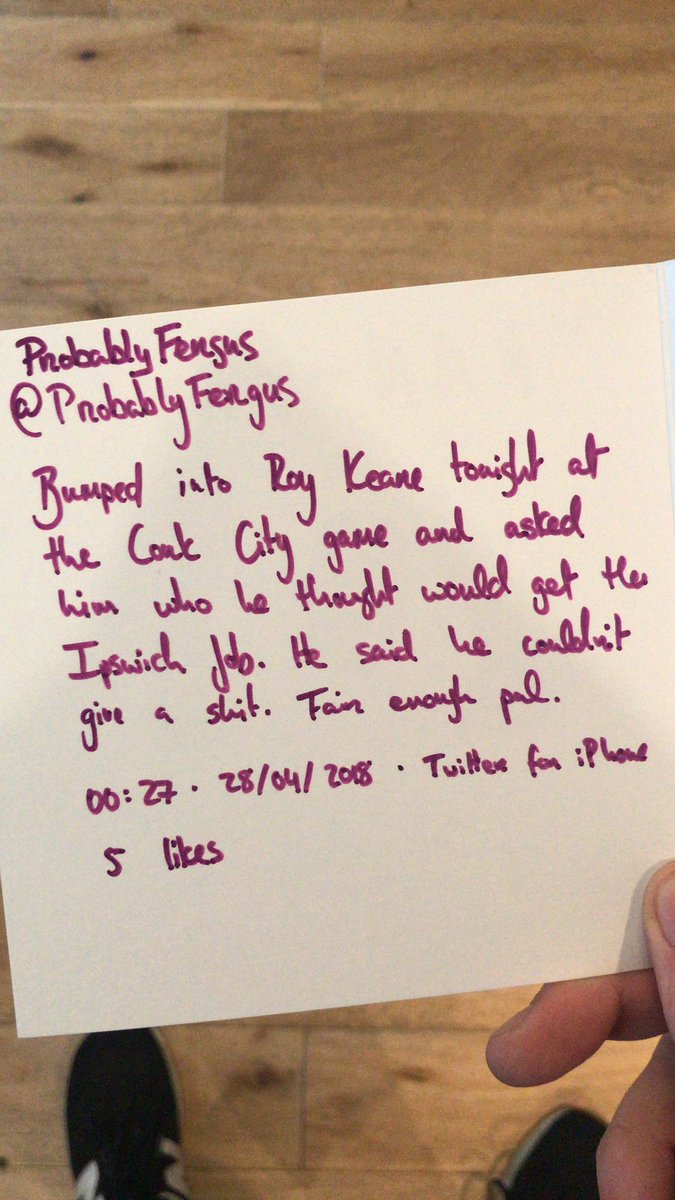 ProbablyFergus
@ProbablyFergus
Bumped into Roy Keane tonight at
the Cork City game and asked
him who he thought would get the
Ipswich Job. He said he couldn't
give a shit. Fair enough pal.
00:27 · 28/04/2018 · Twitter for iPhone
5 likes